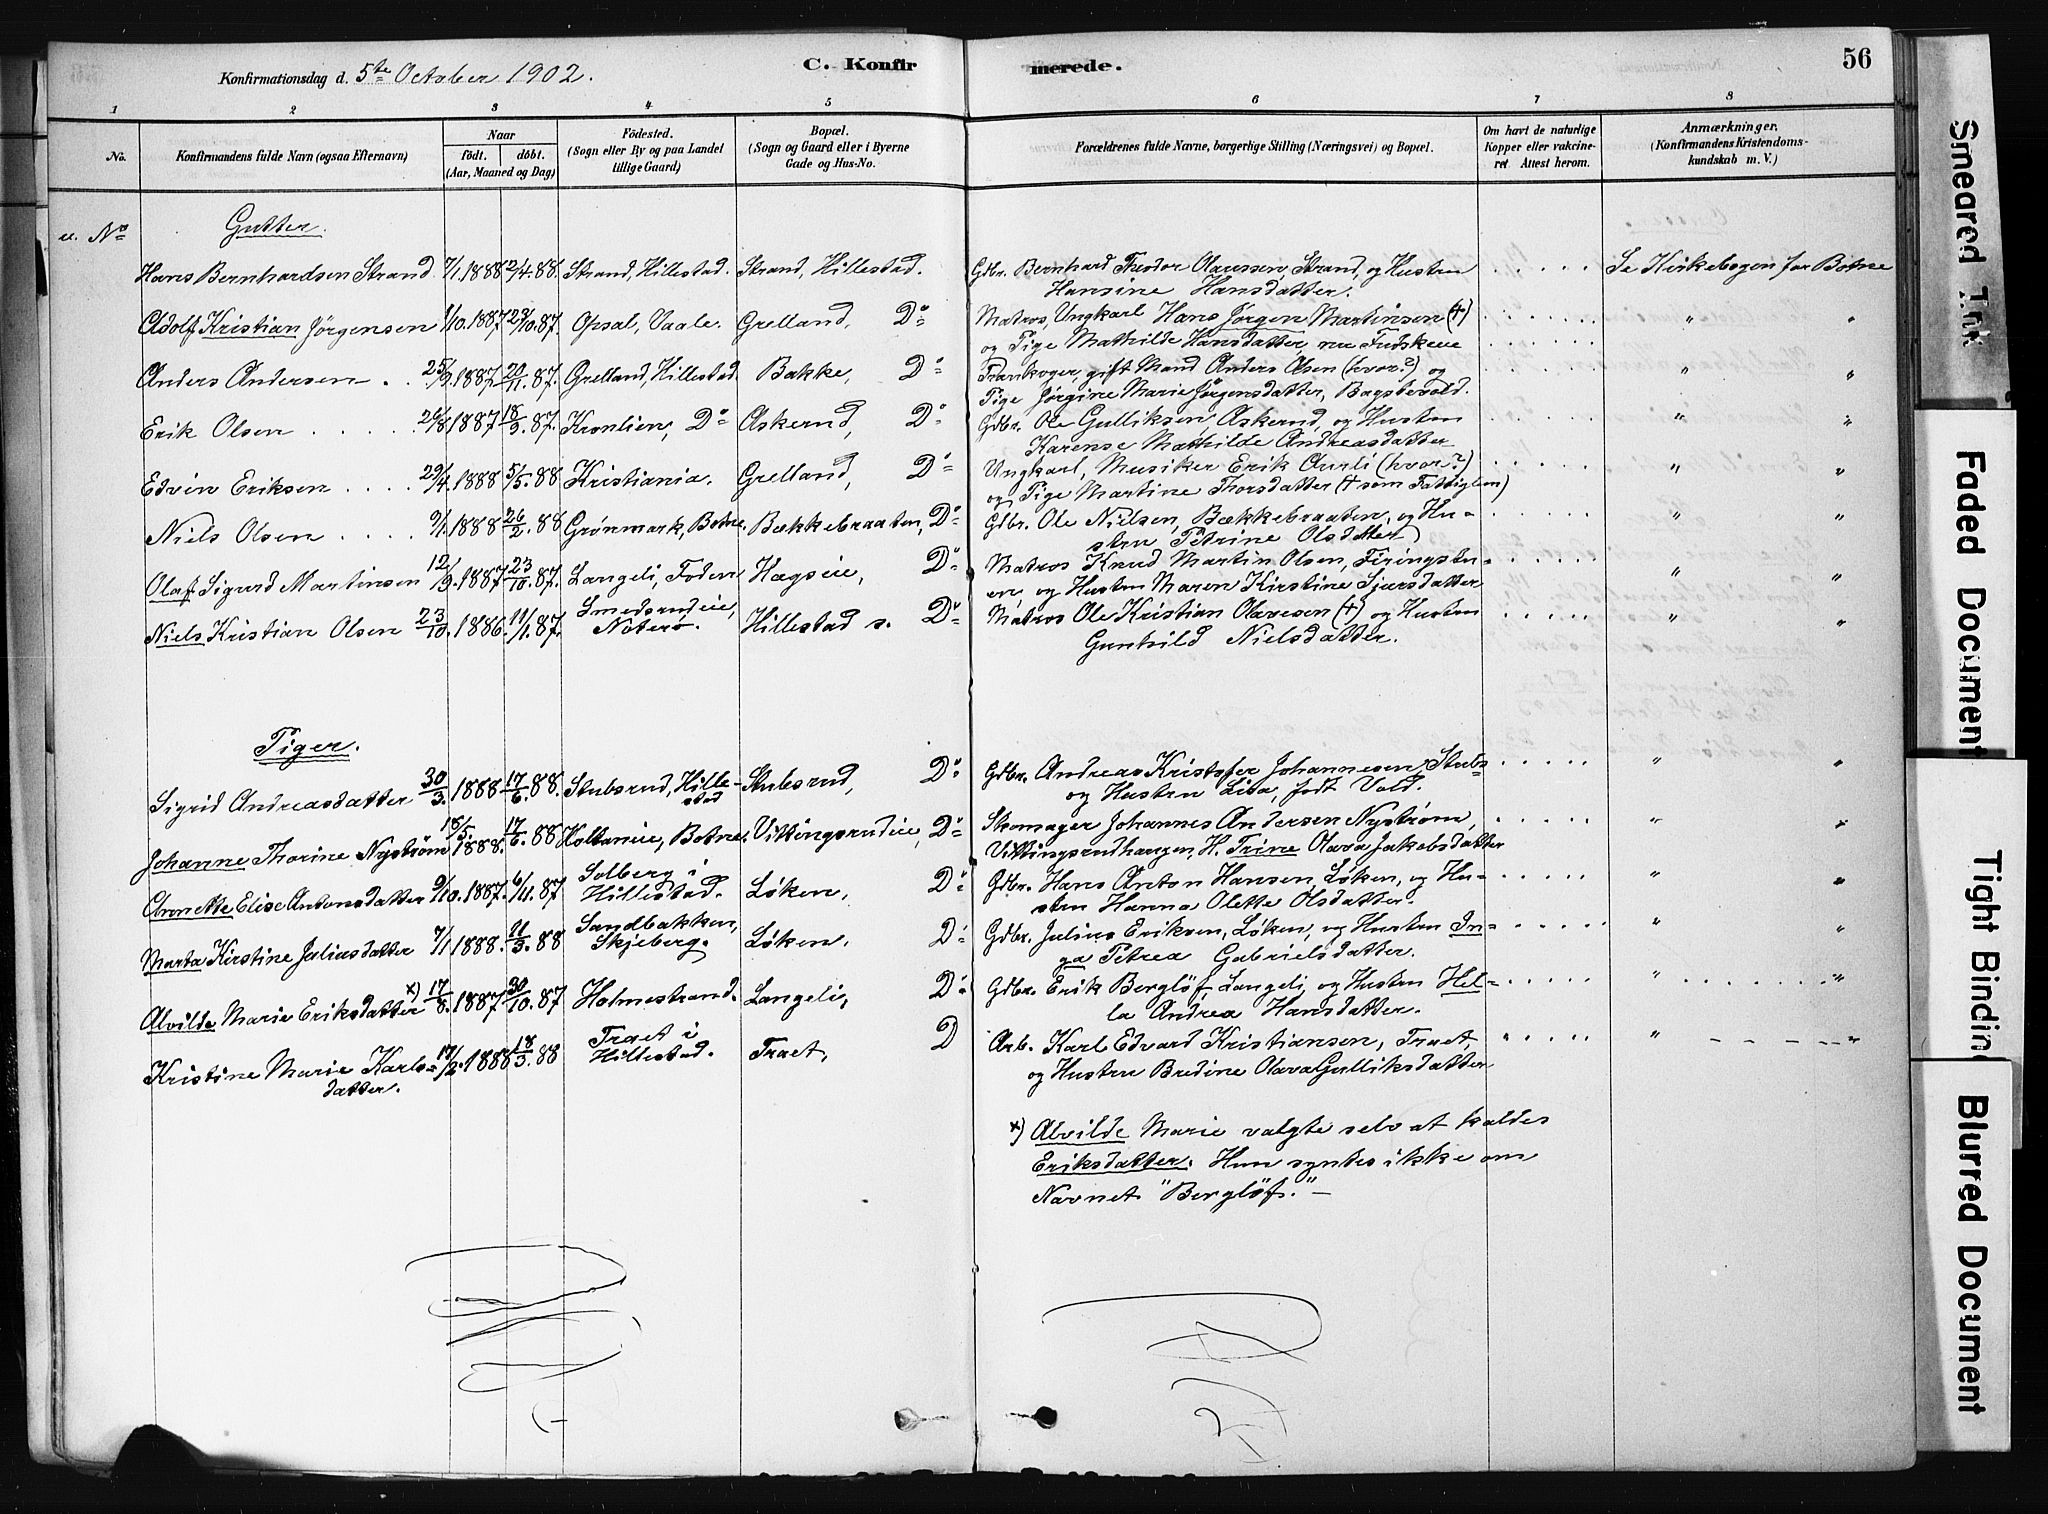 Konfirmationsdag d. 5te October 1902.
C. Konfirmerede.
56
1 2 3 4 5 6 7 8
No.
Konfirmandens fulde Navn (ogsaa Efternavn)
Naar
födt. döbt.
(Aar, Maaned og Dag)
Födested.
(Sogn eller By og paa Landet
tillige Gaard)
Bopæl.
(Sogn og Gaard eller i Byerne
Gade og Hus-No.
Forældrenes fulde Navne, borgerlige Stilling (Næringsvei) og Bopæl.
Om havt de naturlige
Kopper eller vakcine-
ret. Attest herom.
Anmærkninger.
(Konfirmandens Kristendoms-
kundskab m. V.)
u. No Gutter.
Hans Bernhardsen Strand 7/1.1888 2/4.88. Strand, Hillestad. Strand, Hillestad. Gdbr. Bernhard Theodor Olaussen, Strand, og Hustru Se Kirkebogen for Botne
Hansine Hansdatter.
Adolf Kristian Jørgensen 1/10.1887 23/10.87. Opsal, Vaale. Grelland, Do Matros, Ungkarl Hans Jørgen Martinsen (+) " "
og Pige Mathilde Hansdatter, nu Fredskeue
Anders Andersen 25/9.1887 20/11.87. Grelland, Hillestad. Bakke, Do Trankoger, gift Mand Anders Olsen (hvor?) og " "
Pige Jørgine Marie Jörgensdatter, Bagstevold.
Erik Olsen 26/8.1887 18/9.87. Kronlien, Do Askerud, Do Gdbr. Ole Gulliksen, Askerud, og Hustru " "
Karense Mathilde Andreasdatter
Edvin Eriksen 29/4.1888 5/5.88 Kristiania. Grelland, Do Ungkarl, Musiker Erik Aurli (hvor?) " "
og Pige Martine Thorsdatter (+ som Fattiglem)
Niels Olsen 9/1.1888 26/2.88 Grønmark, Botne. Bækkebraaten, Do Gdbr. Ole Nielsen, Bækkebraaten, og Hu- " "
stru Petrine Olsdatter
Olaf Sigurd Martinsen 12/9.1887 23/10.87. Langeli, Foden Hagseie, Do Matros Knud Martin Olsen, Firingstu- " "
en, og Hustru Maren Kirstine Sjursdatter
Niels Kristian Olsen 23/10.1886. 11/1.87. Smedsrudeie, Nøterø. Hillestad s. Do Matros Ole Kristian Olavesen (+) og Hustru " "
Gunhild Nielsdatter.
Piger.
Sigrid Andreasdatter 30/3.1888 17/6.88. Stubsrud, Hille-stad Stubsrud, Do Gdbr. Andreas Kristofer Johannesen, Stubs- " "
og Hustru Lisa, født Vold.
Johanne Thorine Nystrøm 18/5.1888. 17/6.88 Holtaneie, Botne. Vittingsrudeie, Do Skomager Johannes Andersen Nystrøm, " "
Vittingsrudhaugen, H. Trine Olava Jakobsdatter
Anette Elise Antonsdatter 9/10.1887. 6/11.87 Solberg i Hillestad. Løken, Do Gdbr. Hans Anton Hansen, Løken, og Hu- " "
stru Hanna Olette Olsdatter.
Marta Kirstine Juliusdatter 7/1 1888. 11/3.88 Sandbakken, Skjeberg. Løken. Do Gdbr. Julius Eriksen, Løken, og Hustru In- " "
ga Petrea Gabrielsdatter.
Alvilde Marie Eriksdatter x) 17/8.1887 30/10.87 Holmestrand. Langeli, Do Gdbr. Erik Berglöf, Langeli, og Hustru Hel- " "
la Andrea Hansdatter.
Kristine Marie Karls- 17/2.1888 18/3.88 Traet i Hillestad. Traet, D Arb. Karl Edvard Kristiansen, Traet, " "
datter. og Hustru Bredine Olava Gulliksdatter
x) Alvilde Marie valgte selv at kaldes
Eriksdatter. Hun syntes ikke om
Navnet "Berglöf." –
Smeared Ink
Faded Document
Tight Binding
Blurred Document